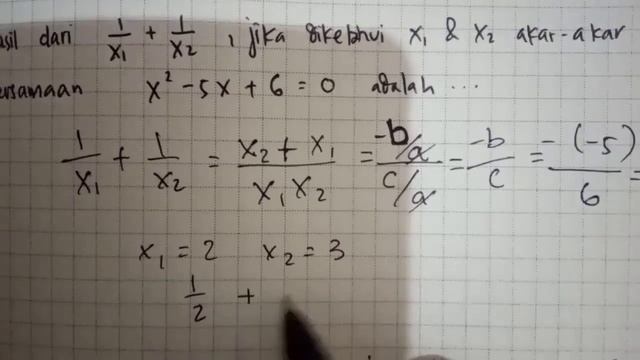 dari 1/x₁ + 1/x₂ , jika diketahui x₁ & x₂ akar-akar
x² - 5x + 6 = 0 adalah ...
1/x₁ + 1/x₂ = (x₂ + x₁)/(x₁ x₂) = (-b/a)/(c/a) = -b/c = -(-5)/6 =
x₁ = 2 x₂ = 3
1/2 +